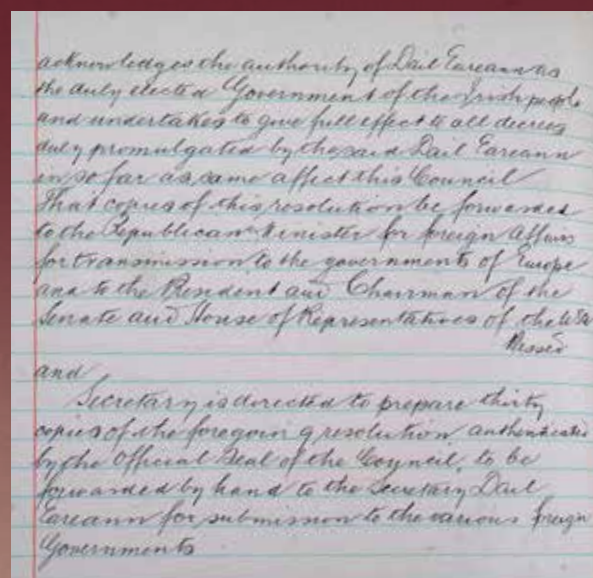 acknowledges the authority of Dail Eareann as
the duly elected Government of the Irish people
and undertakes to give full effect to all decrees
duly promulgated by the said Dail Eareann
in so far as same affect this Council
That copies of this resolution be forwarded
to the Republican Minister for foreign affairs
for transmission to the governments of Europe
and to the President and Chairman of the
Senate and House of Representatives of the USA
Passed
and
Secretary is directed to prepare thirty
copies of the foregoing resolution authenticated
by the Official Seal of the Council, to be
forwarded by hand to the Secretary Dail
Eareann for submission to the various foreign
Governments